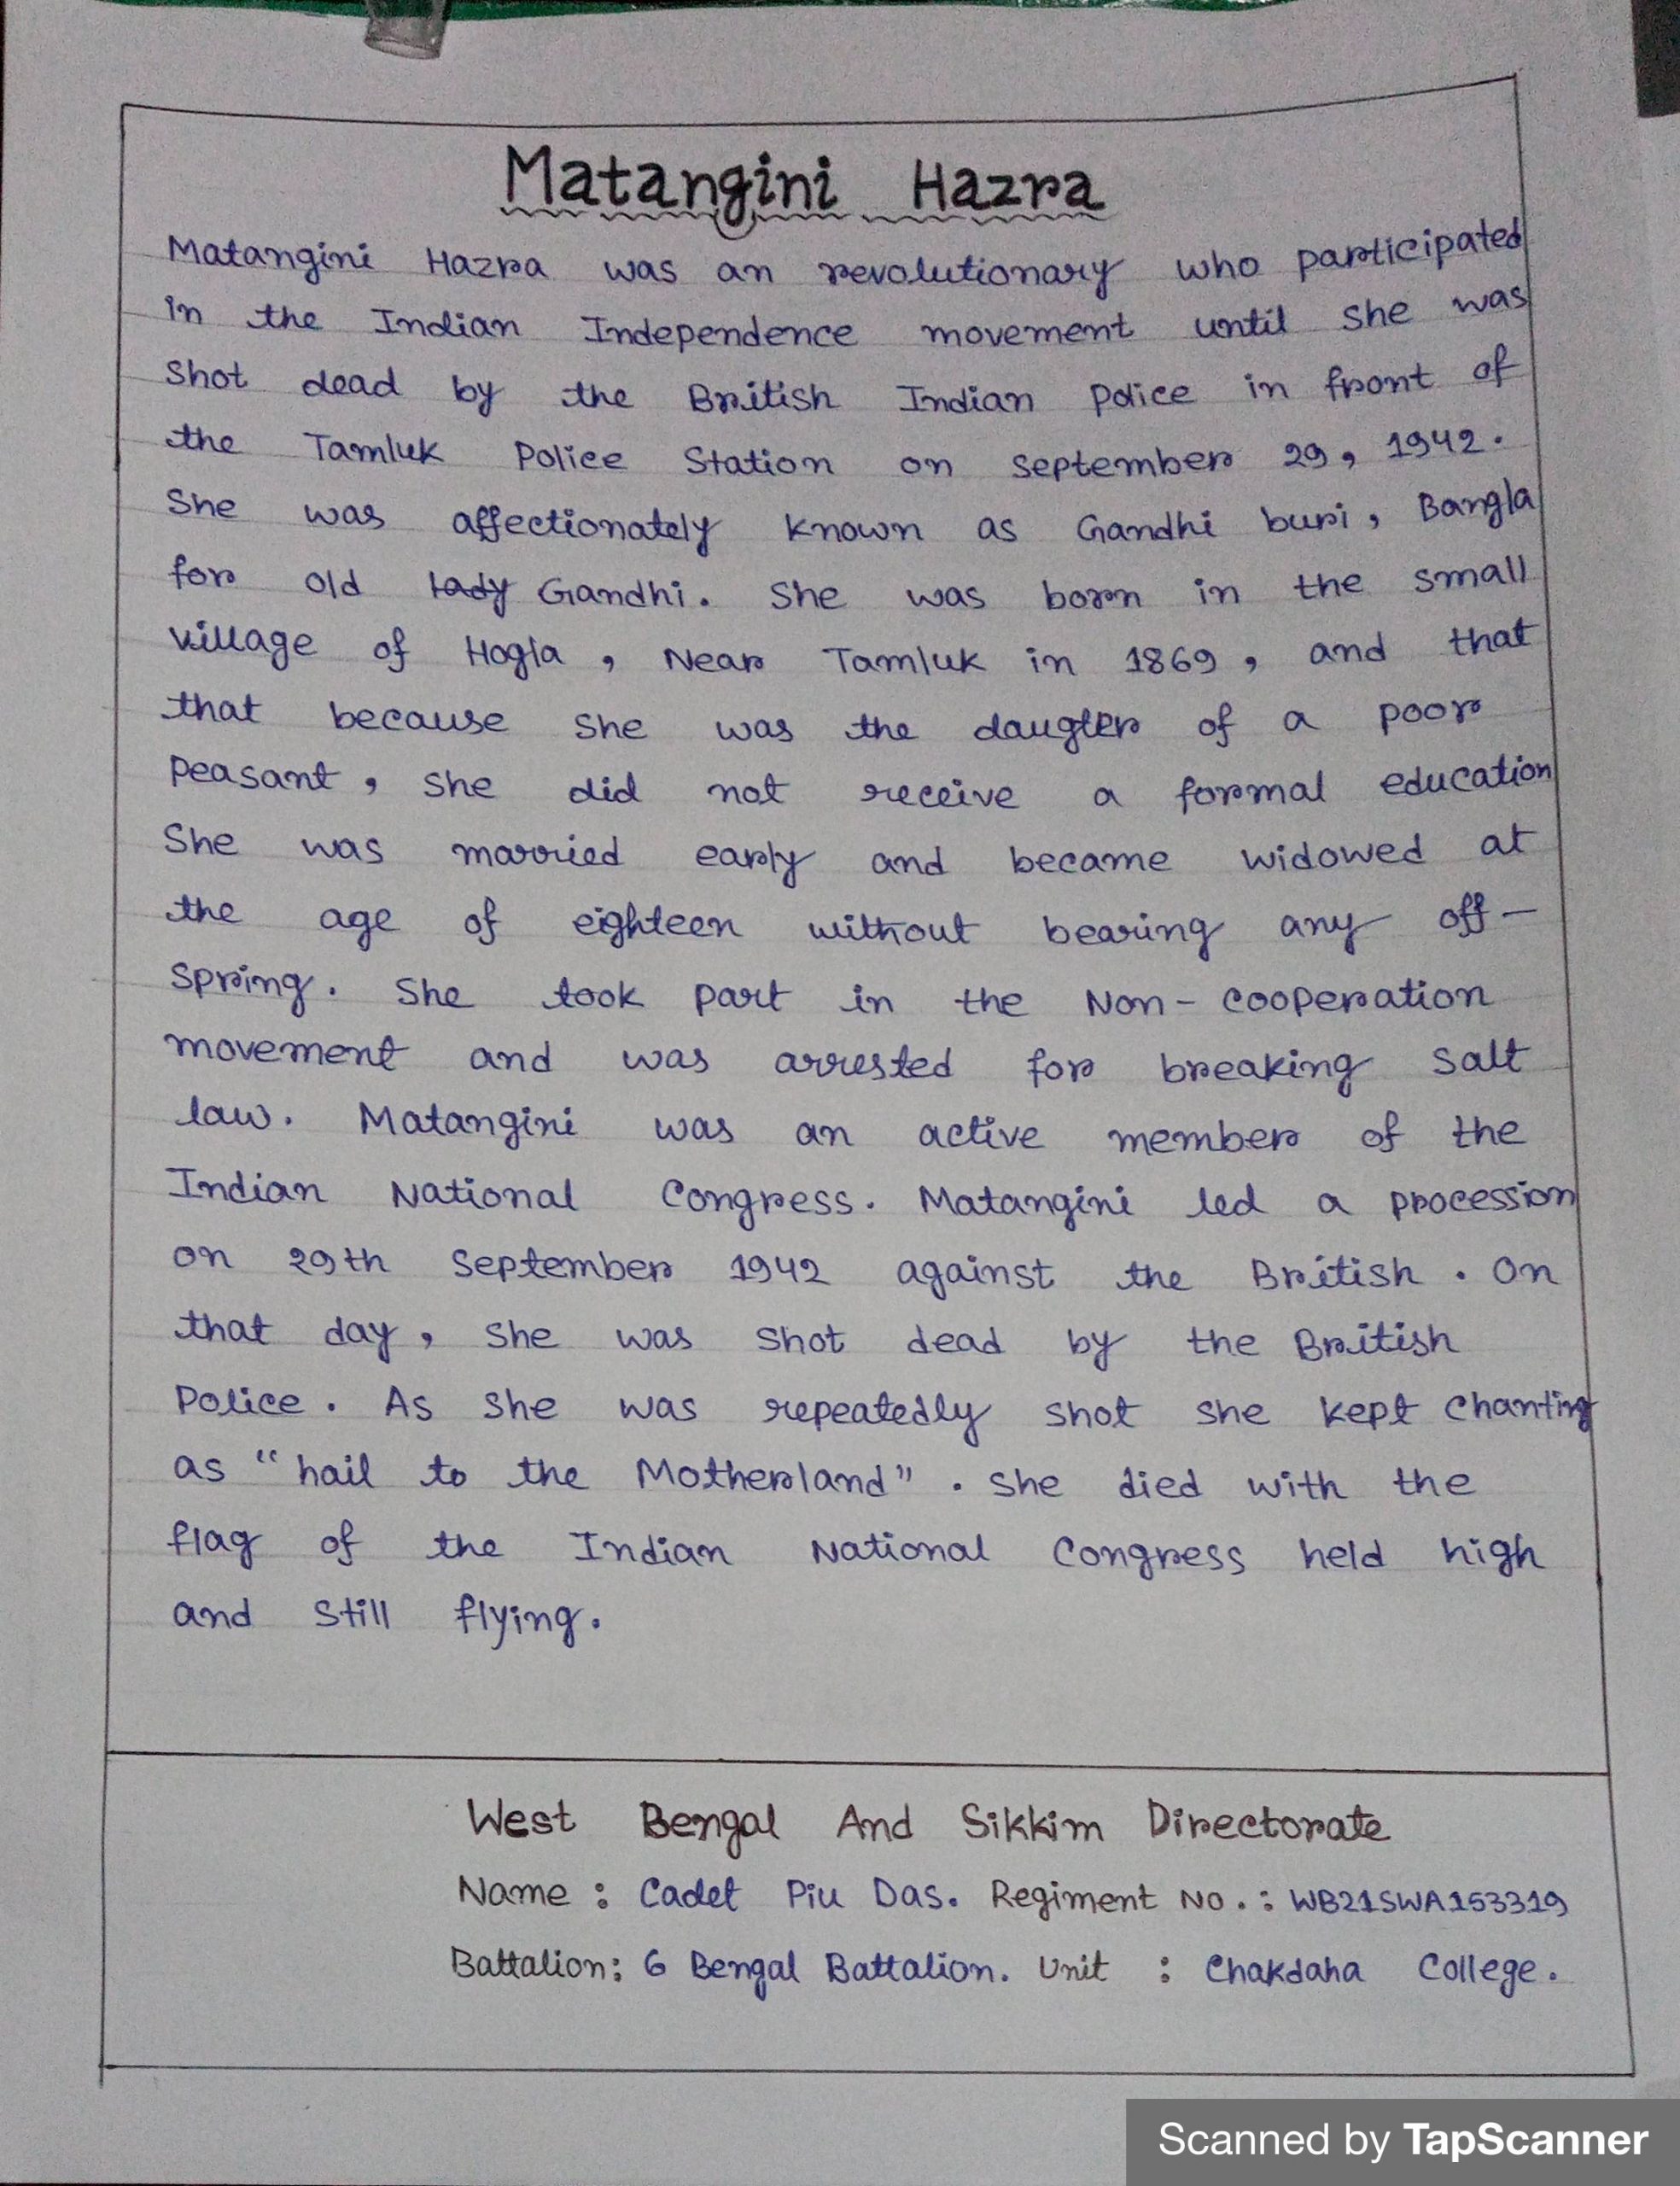 Matangini Hazra
Matangini Hazra was an revolutionary who participated
in the Indian Independence movement until she was
shot dead by the British Indian Police in front of
the Tamluk Police Station on September 29, 1942.
She was affectionately known as Gandhi buri, Bangla
for old lady Gandhi. She was born in the small
village of Hogla, Near Tamluk in 1869, and that
that because she was the daugter of a poor
Peasant, she did not receive a formal education
She was married early and became widowed at
the age of eighteen without bearing any off-
spring. She took part in the Non-Cooperation
movement and was arrested for breaking Salt
law. Matangini was an active member of the
Indian National Congress. Matangini led a procession
on 29th September 1942 against the British. On
that day, she was shot dead by the British
Police. As she was repeatedly shot she kept chanting
as "hail to the Motherland". She died with the
flag of the Indian National Congress held high
and still flying.
West Bengal And Sikkim Directorate
Name : Cadet Piu Das. Regiment No. : WB21SWA153319
Battalion: 6 Bengal Battalion. Unit : Chakdaha College.
Scanned by TapScanner